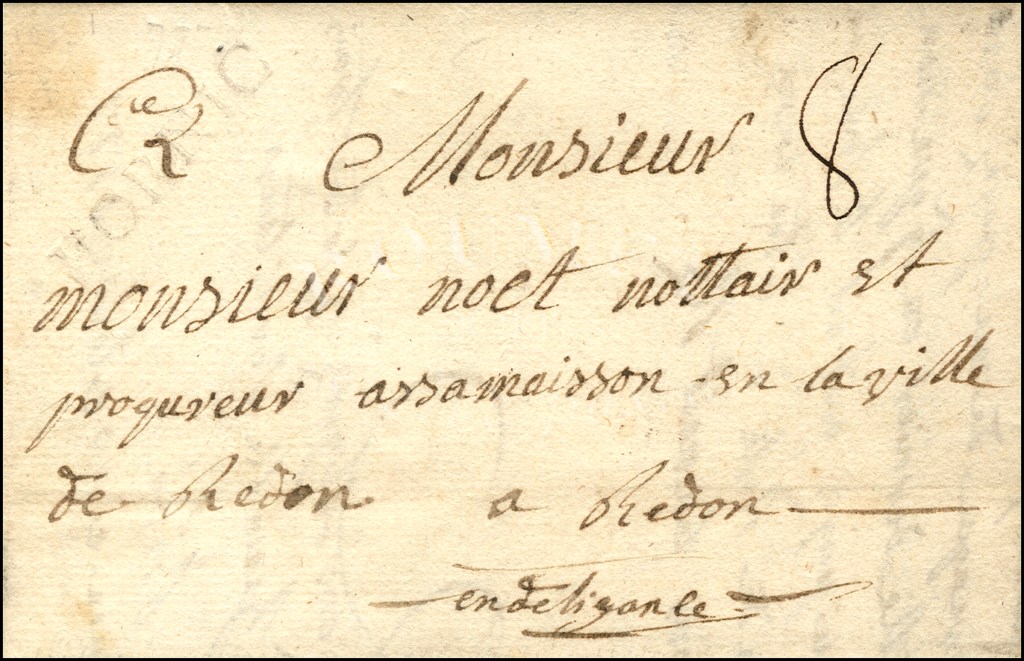 Cie R Monsieur 8
monsieur noet nottair et
proqureur assamaisson en la ville
de Redon a Redon
en deligance